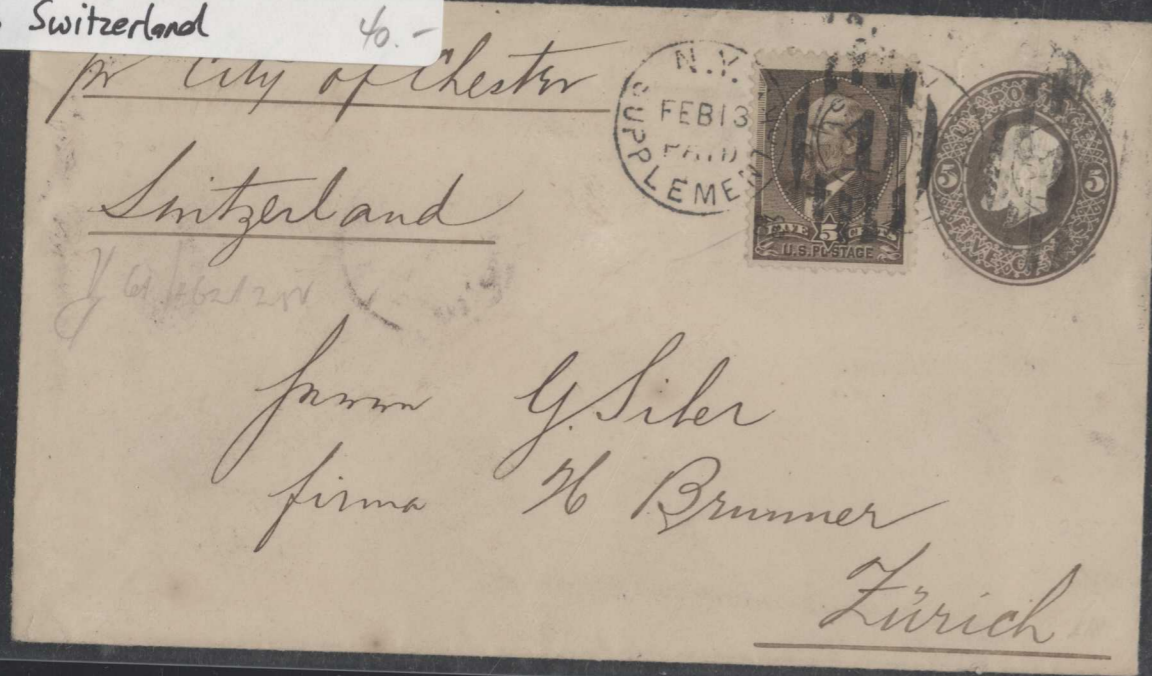 Switzerland 40.-
pr City of Chester
Switzerland
N.Y.
FEB 13
PAID
SUPPLEMEN
FIVE 5 CENTS
U.S. POSTAGE
U.S. POSTAGE
5 5
FIVE CENTS
Herrn G. Siber
firma H Brunner
Zürich